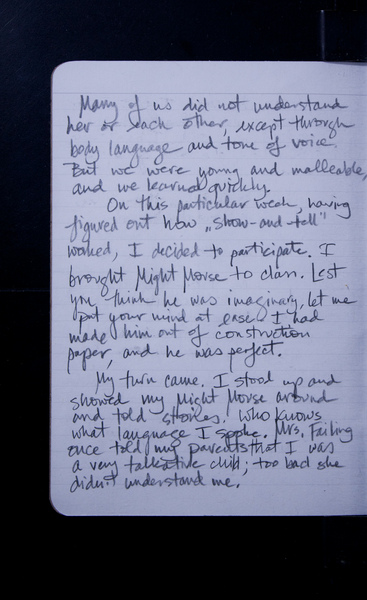 Many of us did not understand
her or each other, except through
body language and tone of voice.
But we were young and malleable,
and we learned quickly.
On this particular week, having
figured out how „show-and-tell"
worked, I decided to participate. I
brought Might Morse to class. Lest
you think he was imaginary, let me
put your mind at ease. I had
made him out of construction
paper, and he was perfect.
My turn came. I stood up and
showed my Might Morse around
and told stories. Who knows
what language I spoke. Mrs. Failing
once told my parents that I was
a very talkative child; too bad she
didn't understand me.